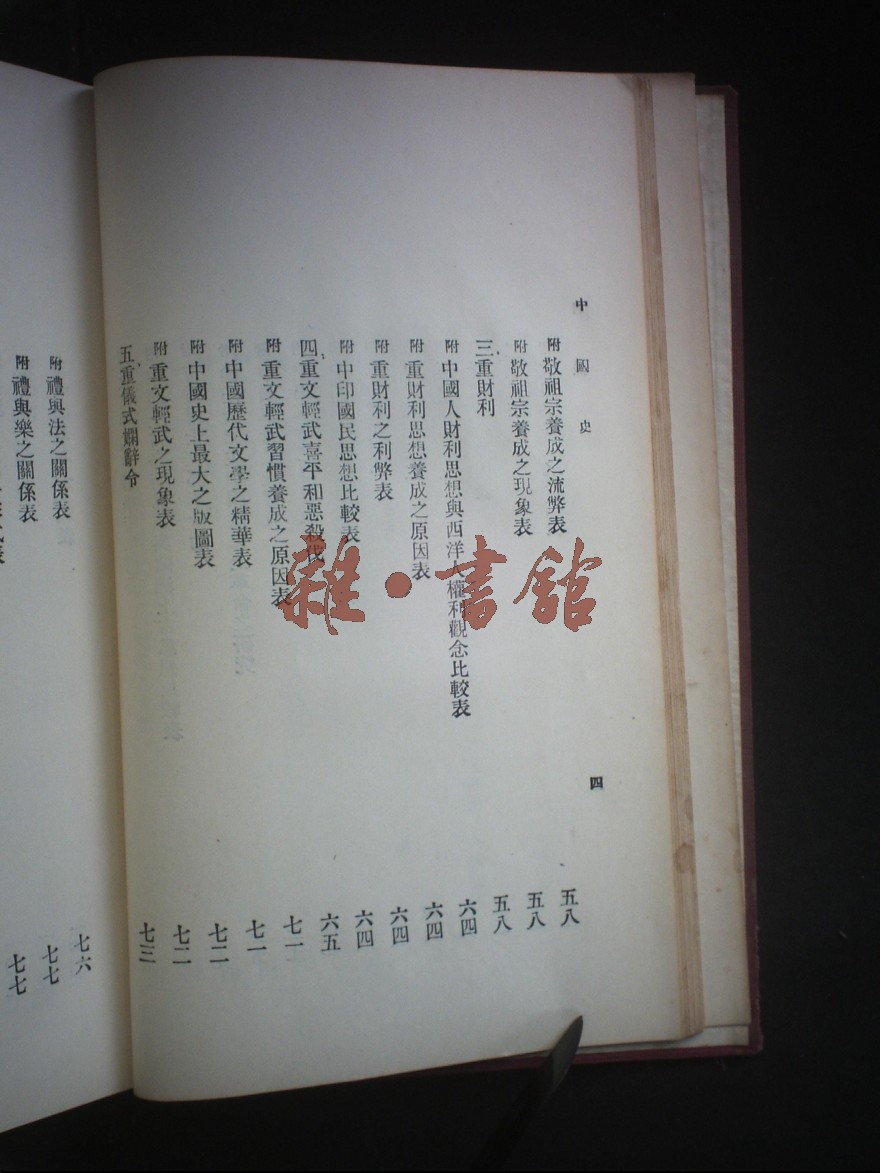 中國史
四
附 敬祖宗養成之流弊表 五八
附 敬祖宗養成之現象表 五八
三、重財利 五八
附 中國人財利思想與西洋人權利觀念比較表 六四
附 重財利思想養成之原因表 六四
附 重財利之利弊表 六四
附 中印國民思想比較表 六四
四、重文輕武喜平和惡殺伐 六五
附 重文輕武習慣養成之原因表 七一
附 中國歷代文學之精華表 七一
附 中國史上最大之版圖表 七二
附 重文輕武之現象表 七二
五、重儀式嫻辭令 七三
附 禮與法之關係表 七六
附 禮與樂之關係表 七七
表 七七
雜·書館